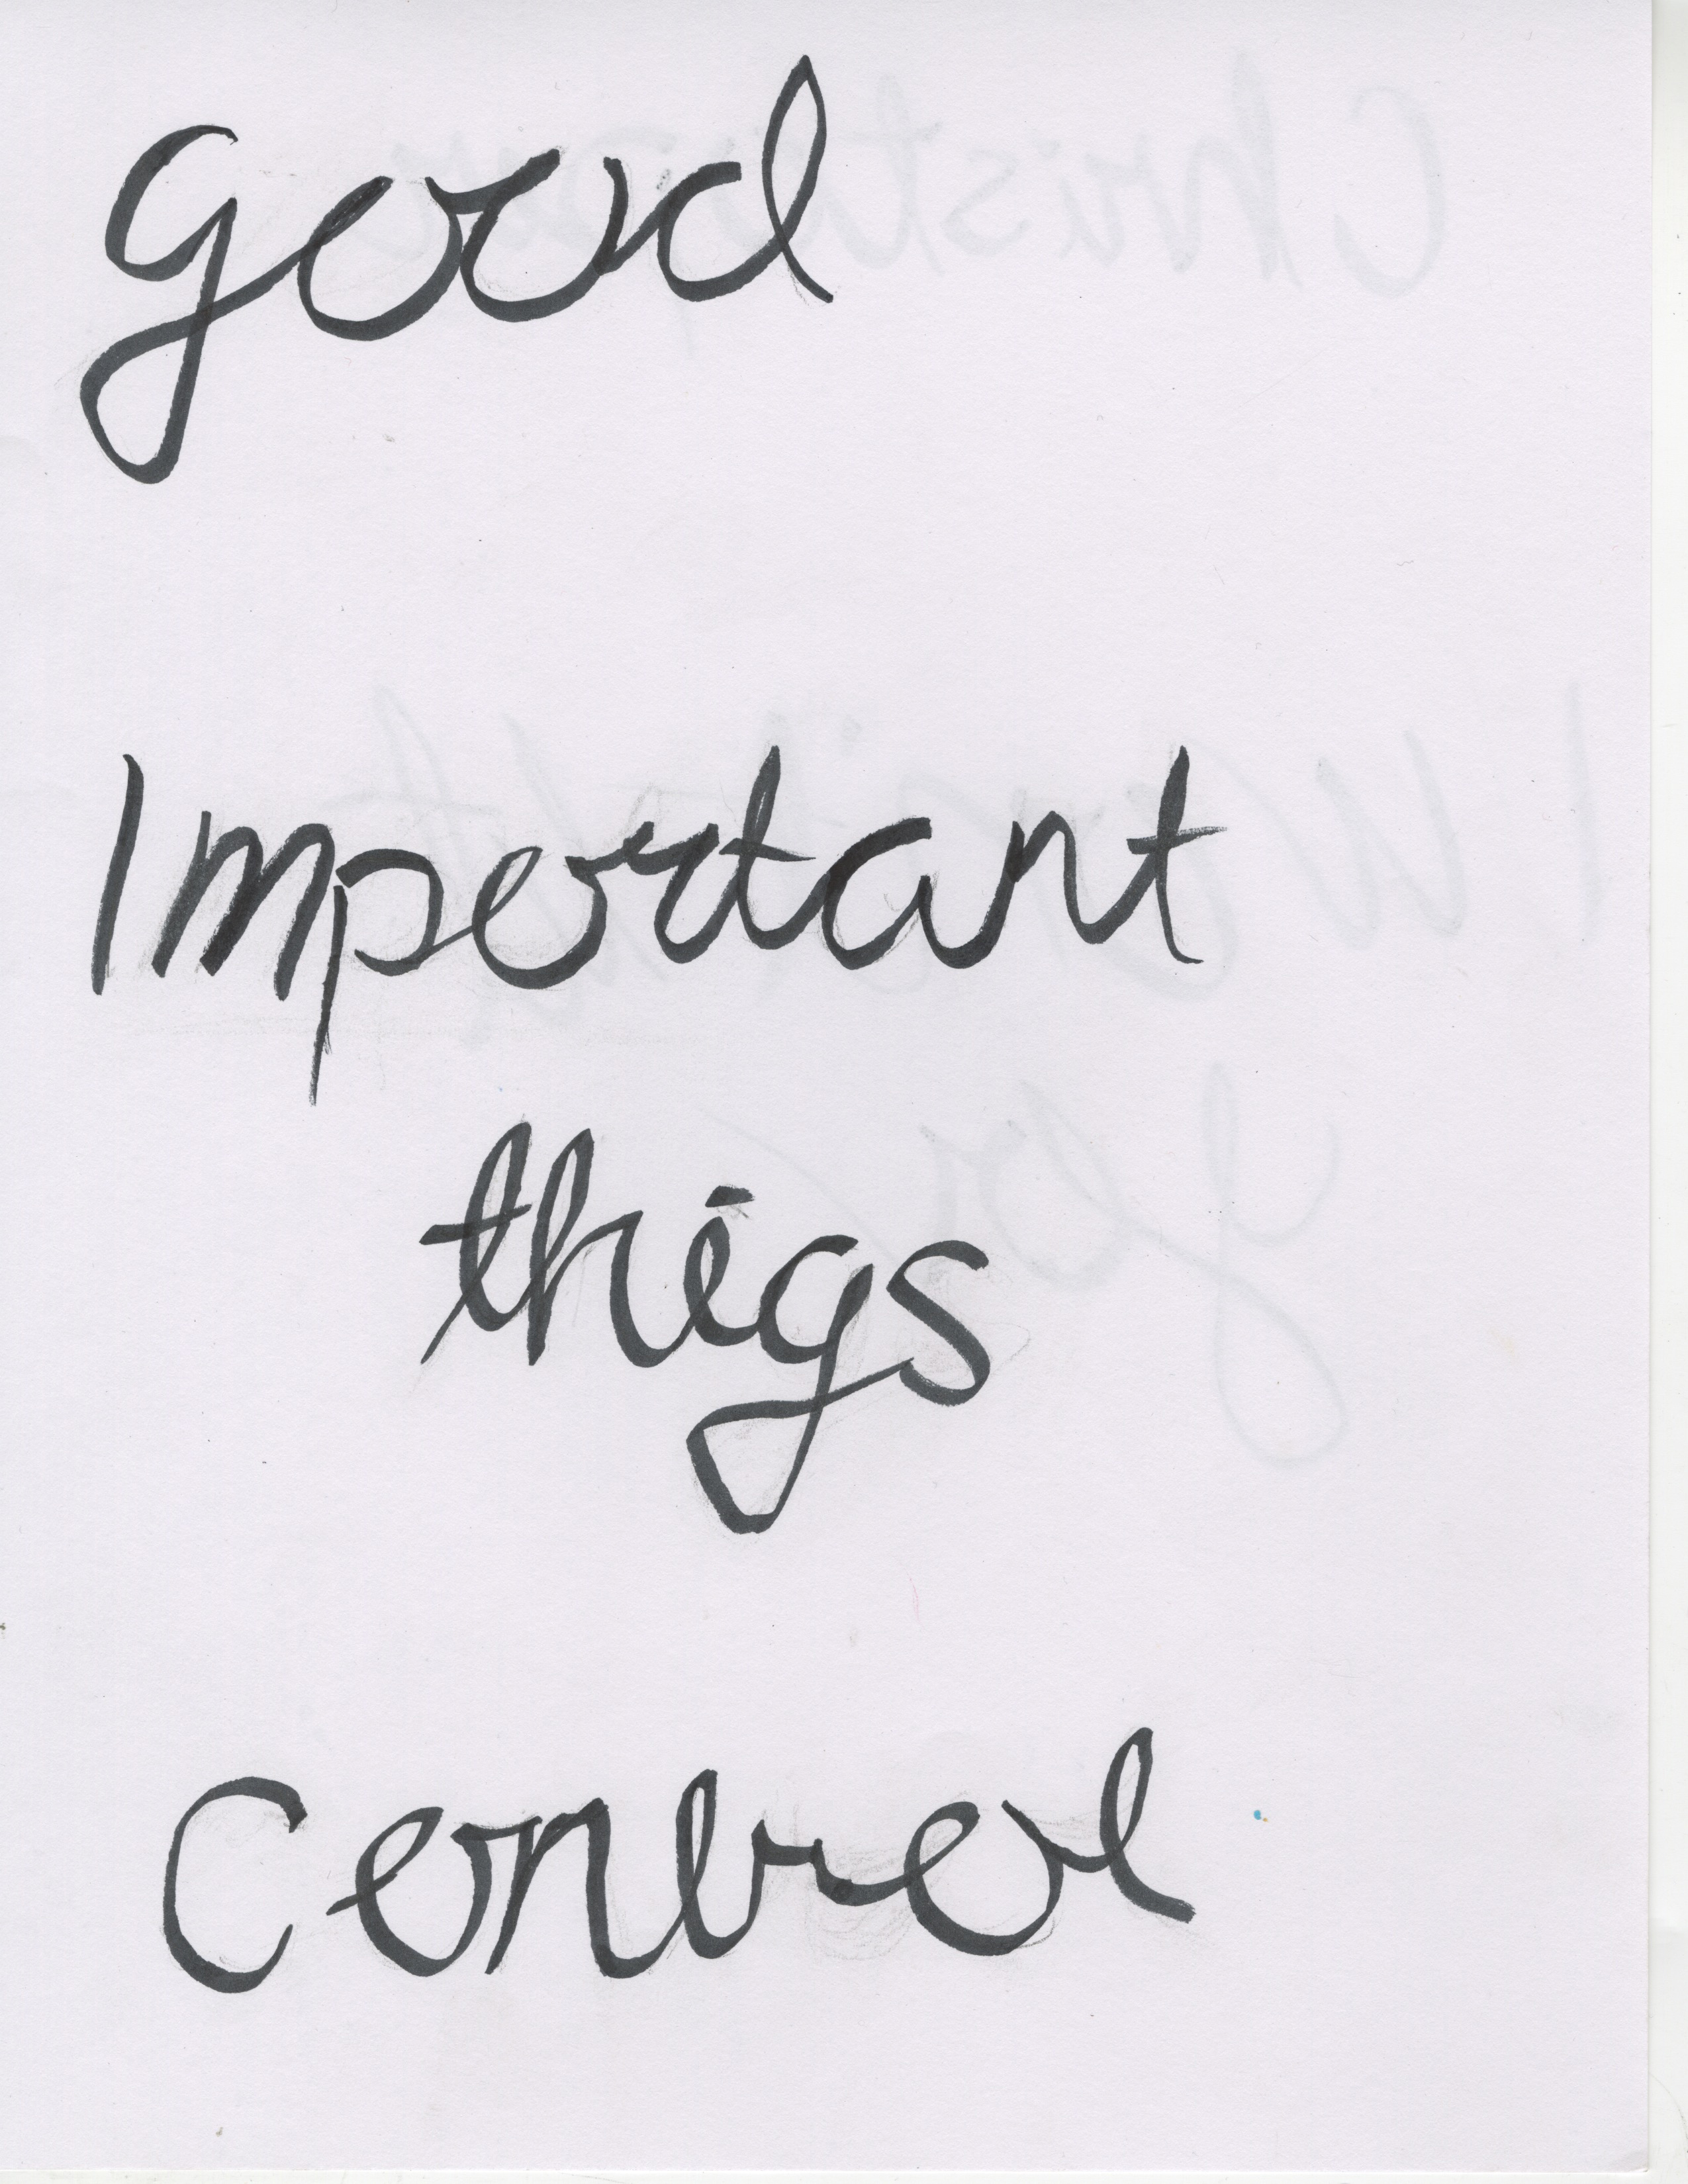 good
Important
thigs
Control